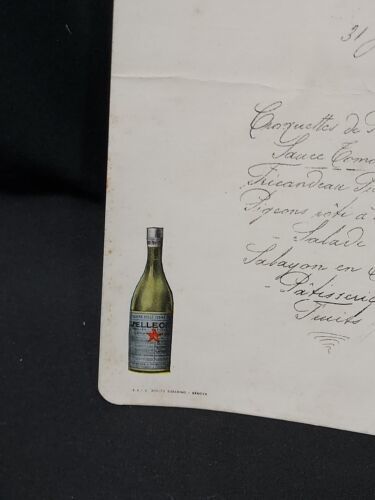 31
Croquettes de
Sauce Tom
Fricandeau
Pigeons rôti à
- Salade
Sabayon en
- Pâtisserie
Fruits
PELLEG
GENOVA